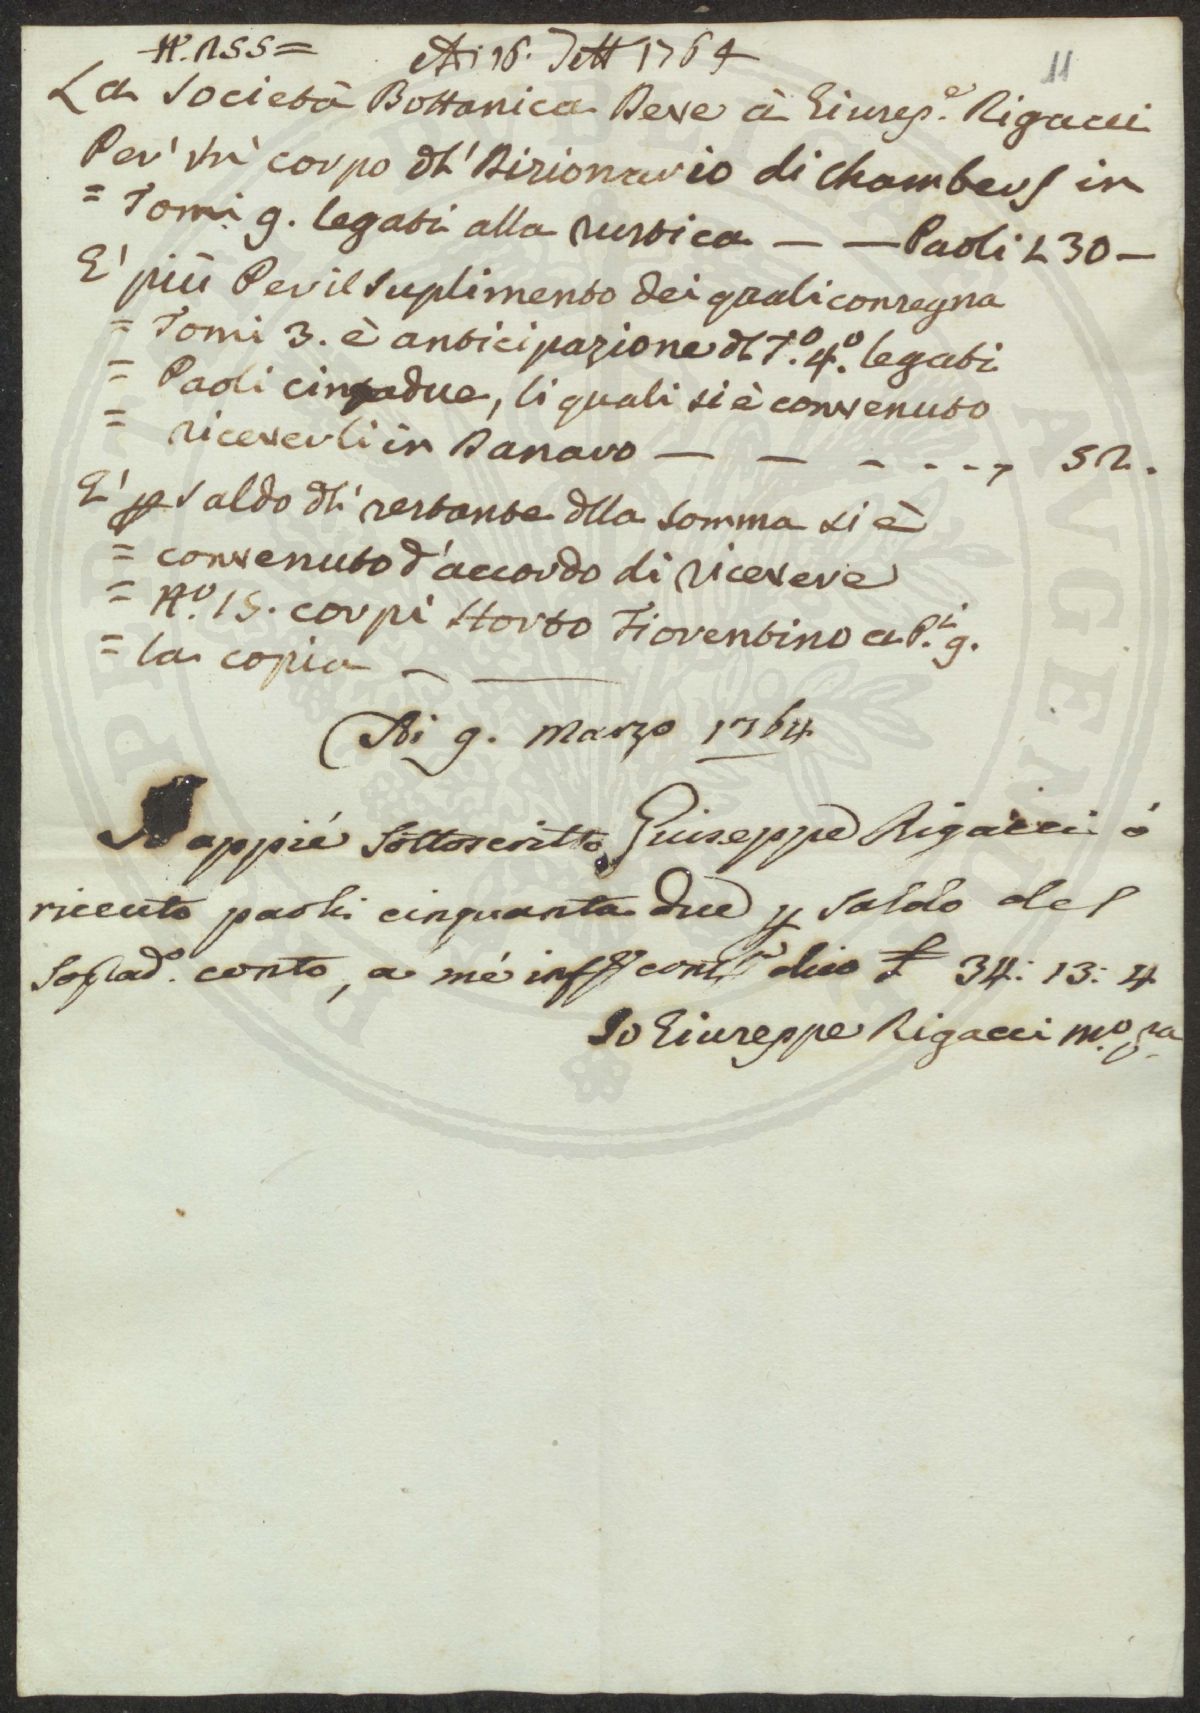 N. 255=
Ai 16. Sett 1764
11
La Società Bottanica Deve à Giusep.e Rigacci
Per' un' corpo dl' Dizionario di Chambers in
= Tomi 9. legati alla rustica — — Paoli 130 —
E' più Per il suplimento dei quali consegna
= Tomi 3. è anticipazione dl T.o 4.o legati
= Paoli cinqadue, li quali si è convenuto
= riceverli in Danaro — — - - - - , 52.
E' p saldo dl' restante dlla somma si è
= convenuto d'accordo di ricevere
= N.o 15. corpi Horto Fiorentino a P.li 9.
= la copia — ——
Ai 9. Marzo 1764
Io appié sottoscritto Giuseppe Rigacci ó
riceuto paoli cinquanta due p saldo del
Sop.ad.o conto, a mé dico £ 34: 13: 4
Io Giuseppe Rigacci m.o p.a